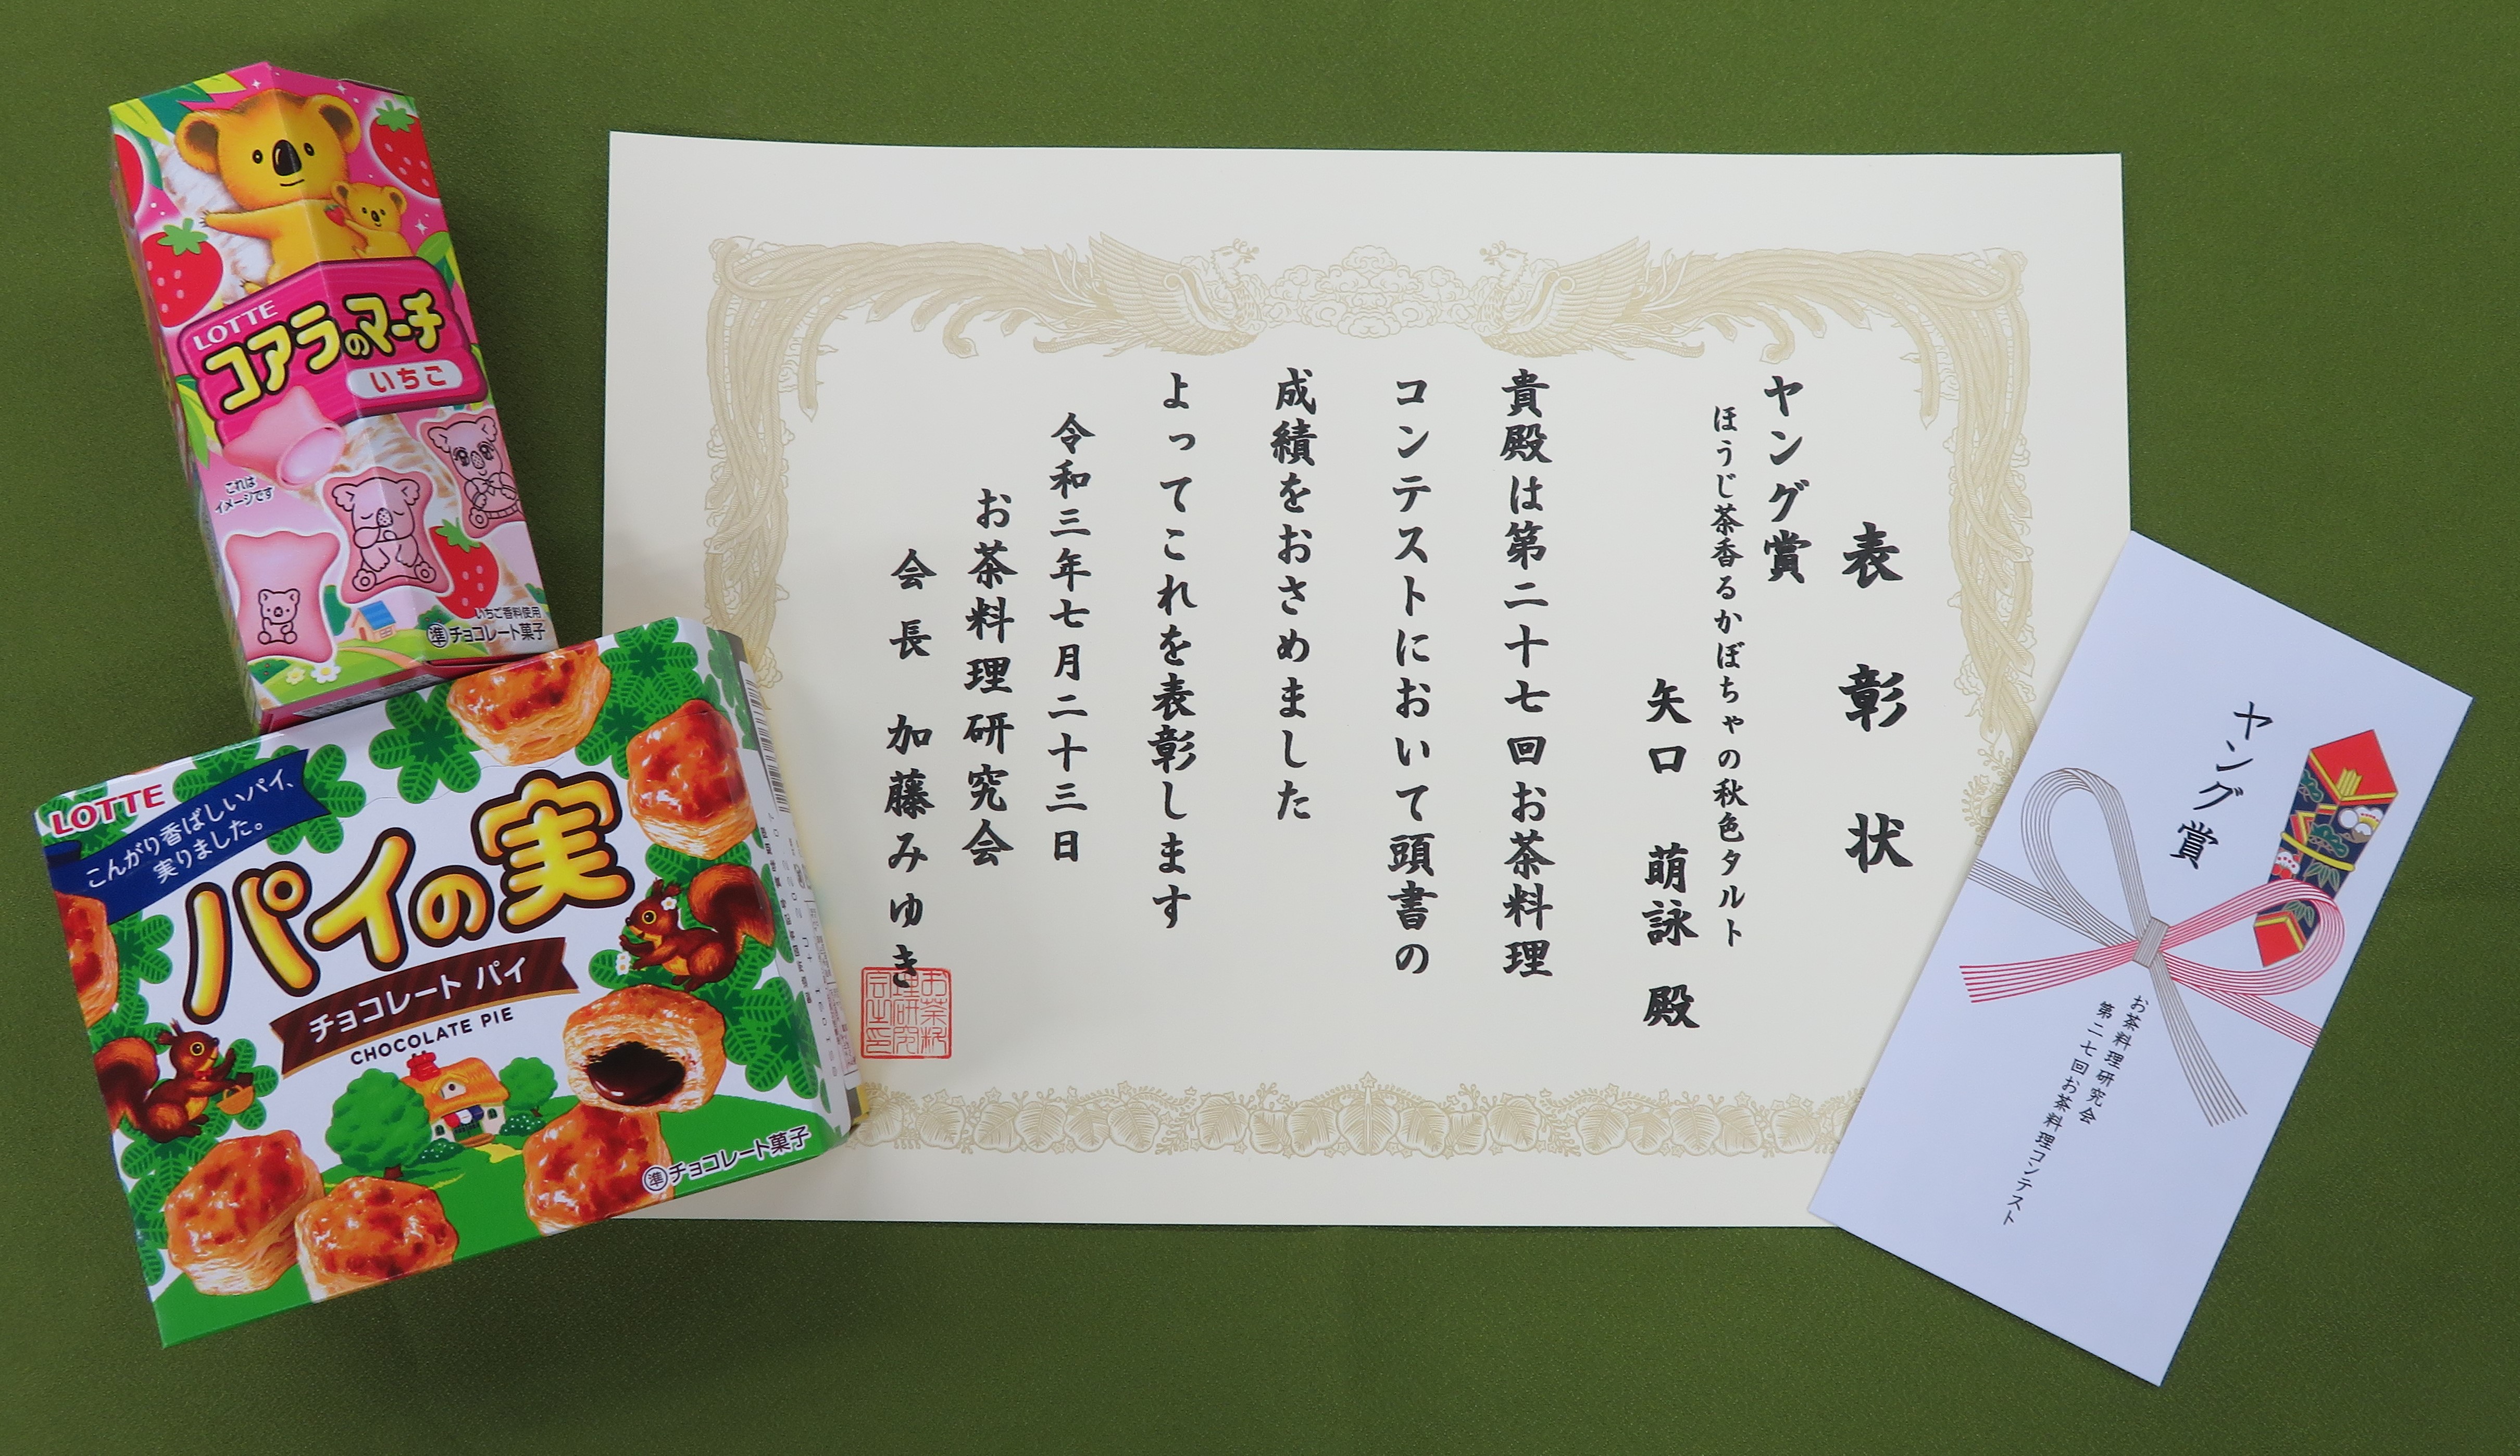 表彰状
ヤング賞
ほうじ茶香るかぼちゃの秋色タルト
矢口 萌詠 殿
貴殿は第二十七回お茶料理
コンテストにおいて頭書の
成績をおさめました
よってこれを表彰します
令和三年七月二十三日
お茶料理研究会
会長 加藤みゆき
LOTTE
コアラのマーチ
いちご
これは
イメージです
いちご香料使用
準チョコレート菓子
LOTTE
こんがり香ばしいパイ、
実りました。
パイの実
チョコレート パイ
CHOCOLATE PIE
準チョコレート菓子
ヤング賞
お茶料理研究会
第二七回お茶料理コンテスト